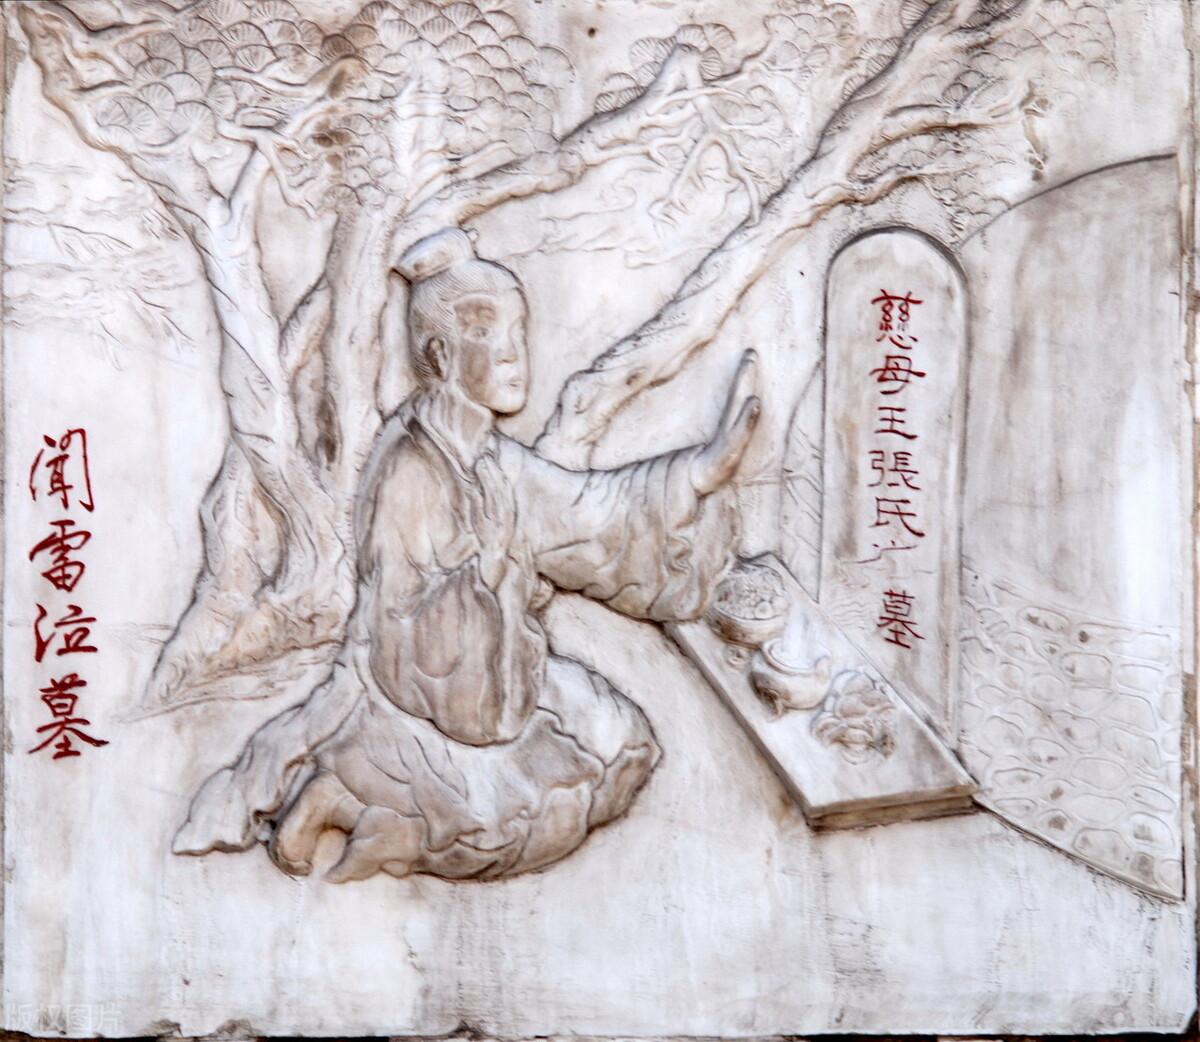 慈母王張氏之墓
聞雷泣墓
版权图片